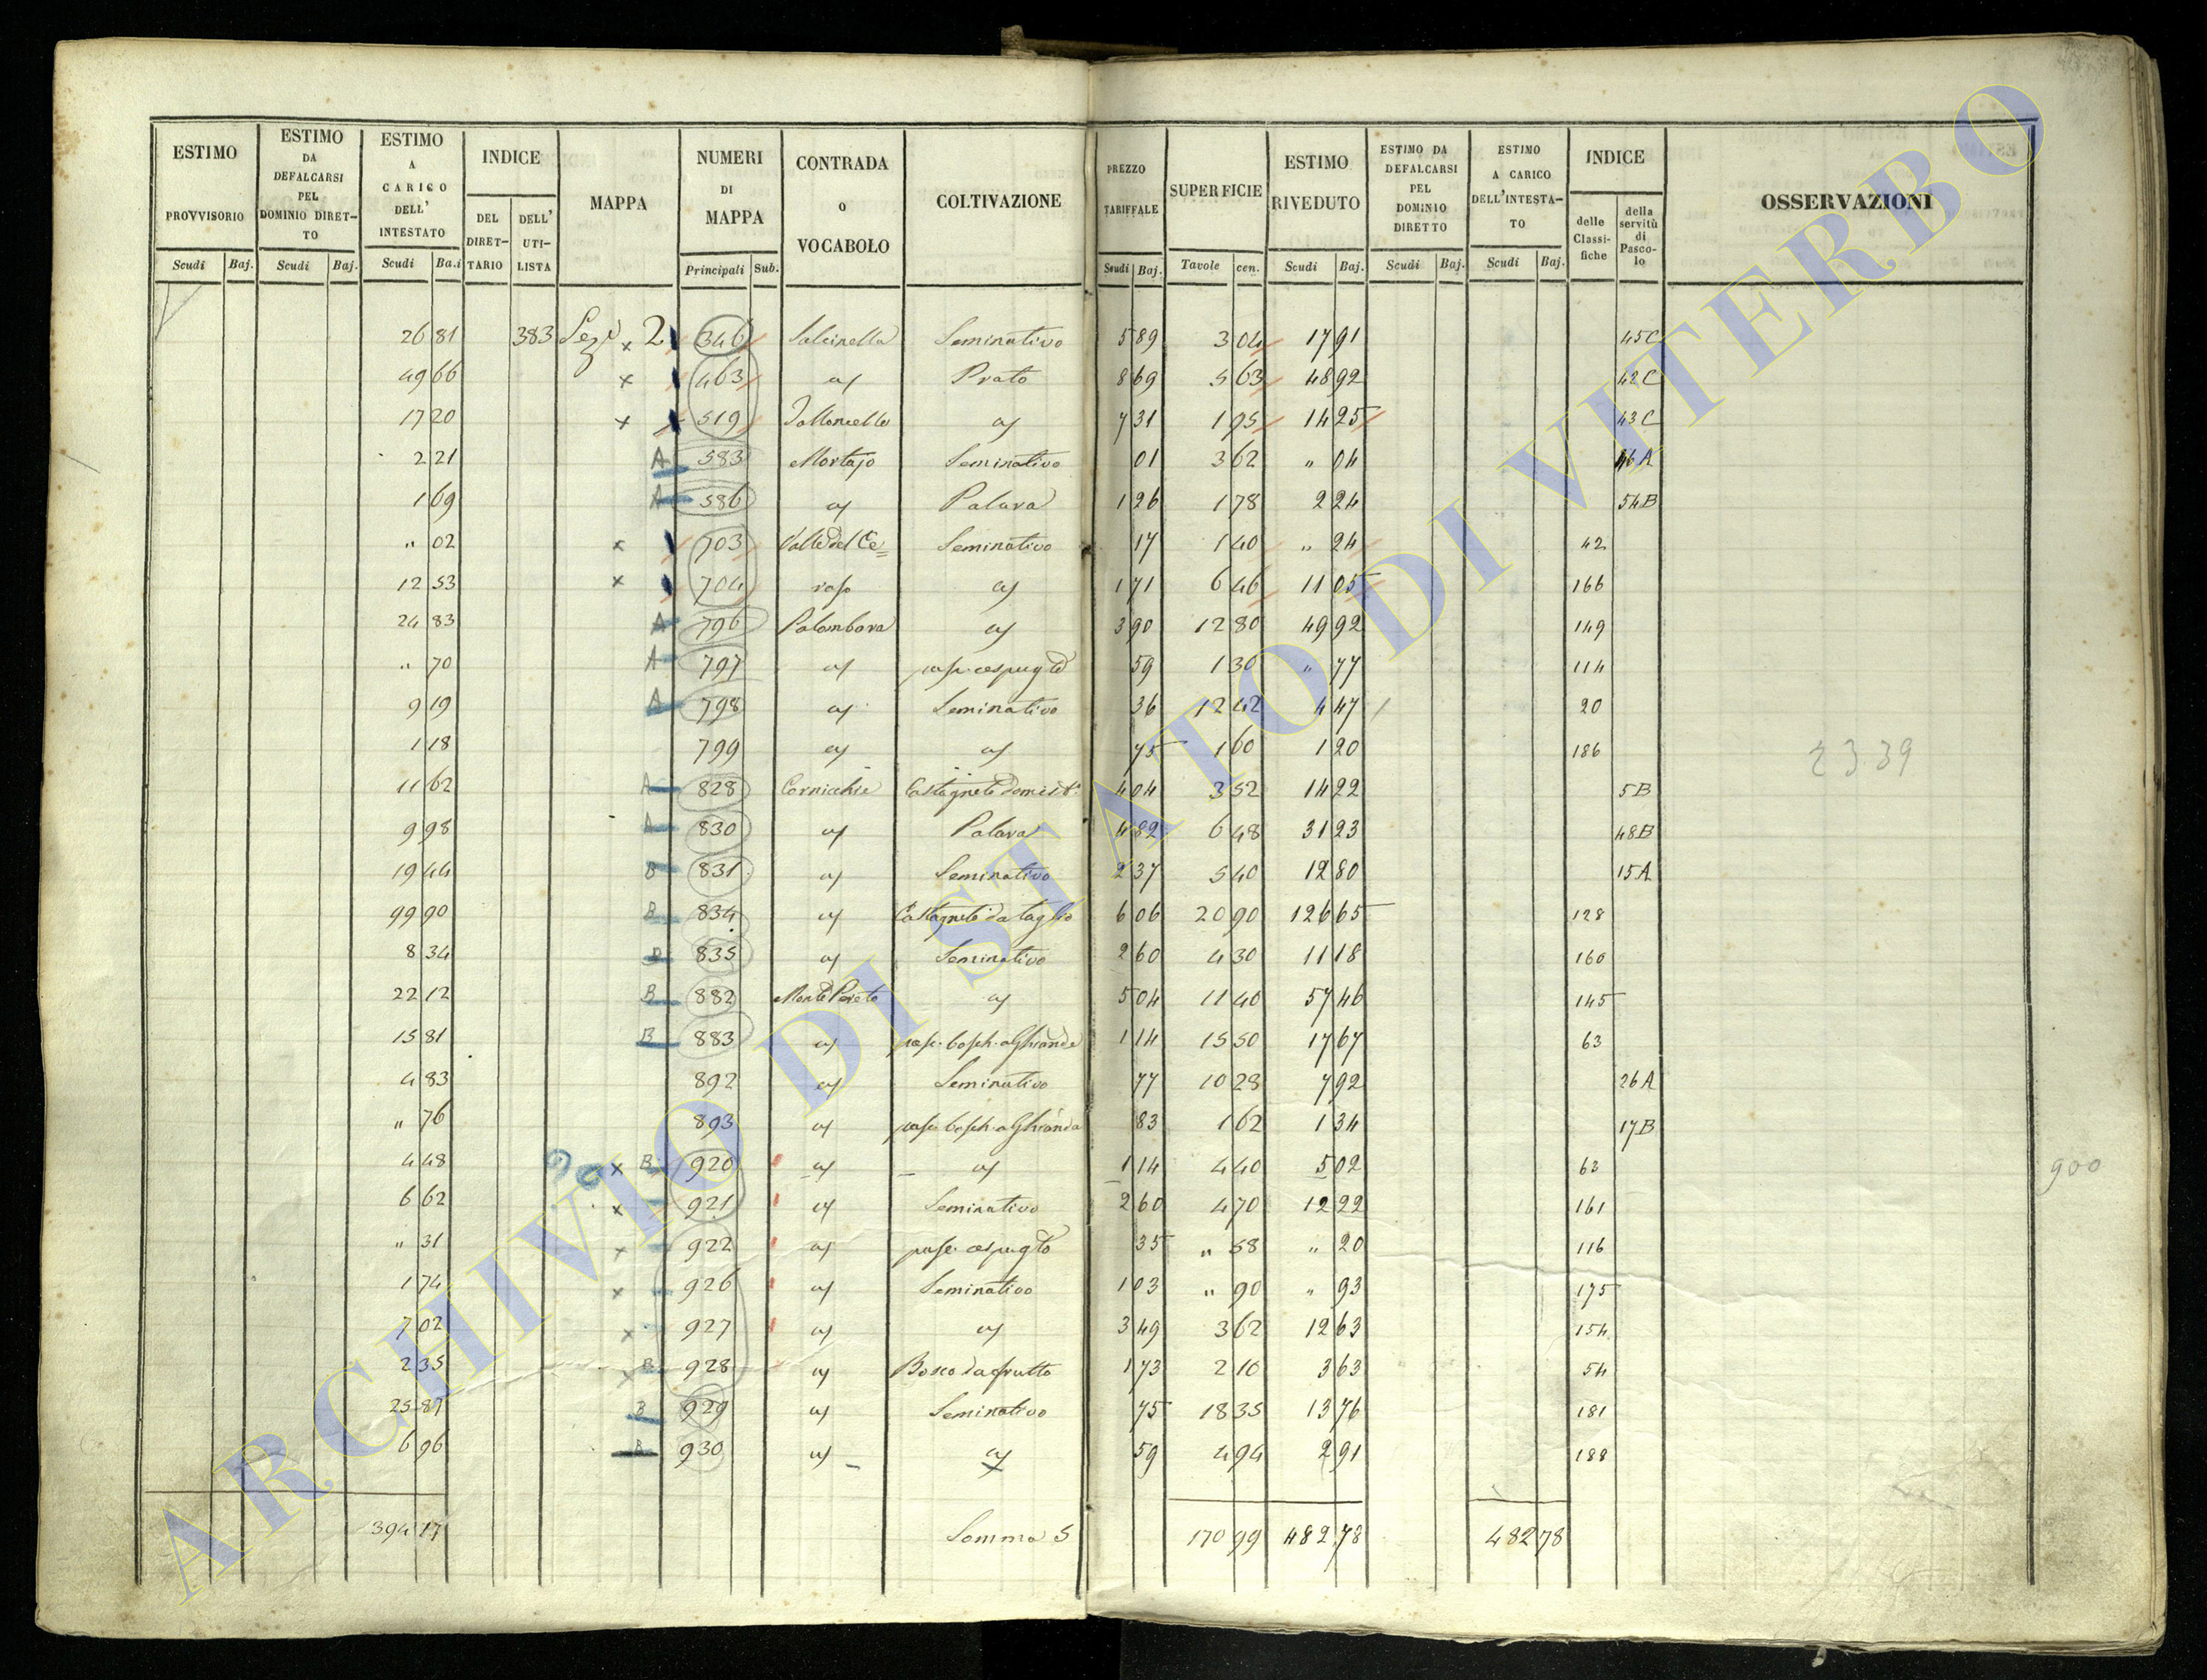 ESTIMO PROVVISORIO Scudi Baj. ESTIMO DA DEFALCARSI PEL DOMINIO DIRETTO Scudi Baj. ESTIMO A CARICO DELL' INTESTATO Scudi Ba.i INDICE DEL DIRETTARIO DELL' UTILISTA MAPPA NUMERI DI MAPPA Principali Sub. CONTRADA O VOCABOLO COLTIVAZIONE PREZZO TARIFFALE Scudi Baj. SUPERFICIE Tavole cen. ESTIMO RIVEDUTO Scudi Baj. ESTIMO DA DEFALCARSI PEL DOMINIO DIRETTO Scudi Baj. ESTIMO A CARICO DELL'INTESTATO Scudi Baj. INDICE delle Classifiche della servitù di Pascolo OSSERVAZIONI
26 81 383 Sez.e x 2 346 Salcinella Seminativo 5 89 3 04 17 91 45C
49 66 x 463 " Prato 8 69 5 63 48 92 42C
17 20 x 519 " 7 31 1 95 14 25 43C
2 21 A 583 Mortajo Seminativo 01 3 62 " 04 46A
1 69 A 586 " Palara 1 26 1 78 2 24 54B
" 02 x 703 Valle del Ce= Seminativo 17 1 40 " 24 42
12 53 x 704 raso " 1 71 6 46 11 05 166
24 83 A 796 Palombara " 3 90 12 80 49 92 149
" 70 A 797 " pasc. cespugto 59 1 30 " 77 114
9 19 A 798 " Seminativo 36 12 42 4 47 20
1 18 799 " " 75 1 60 1 20 186 23.39
11 62 A 828 Cornicchie Castagneto domest.o 4 04 3 52 14 22 5B
9 98 A 830 " Palara 4 82 6 48 31 23 48B
19 44 B 831 " Seminativo 2 37 5 40 12 80 15A
99 90 B 834 " Castagneto da taglio 6 06 20 90 126 65 128
8 34 B 835 " Seminativo 2 60 4 30 11 18 160
22 12 B 882 Monte Pereto " 5 04 11 40 57 46 145
15 81 B 883 " pasc. bosch. a Ghianda 1 14 15 50 17 67 63
4 83 892 " Seminativo 77 10 28 7 92 26A
" 76 893 " pasc. bosch. a Ghianda 83 1 62 1 34 17B
4 48 x B 920 " " 1 14 4 40 5 02 63 900
6 62 x 921 " Seminativo 2 60 4 70 12 22 161
" 31 x 922 " pasc. cespugto 35 " 58 " 20 116
1 74 x 926 " Seminativo 1 03 " 90 " 93 175
7 02 x 927 " " 3 49 3 62 12 63 154
2 35 x B 928 " Bosco da frutto 1 73 2 10 3 63 54
25 87 B 929 " Seminativo 75 18 35 13 76 181
6 96 B 930 " " 59 4 94 2 91 188
394 17 Somma S 170 99 482 78 482 78
ARCHIVIO DI STATO DI VITERBO